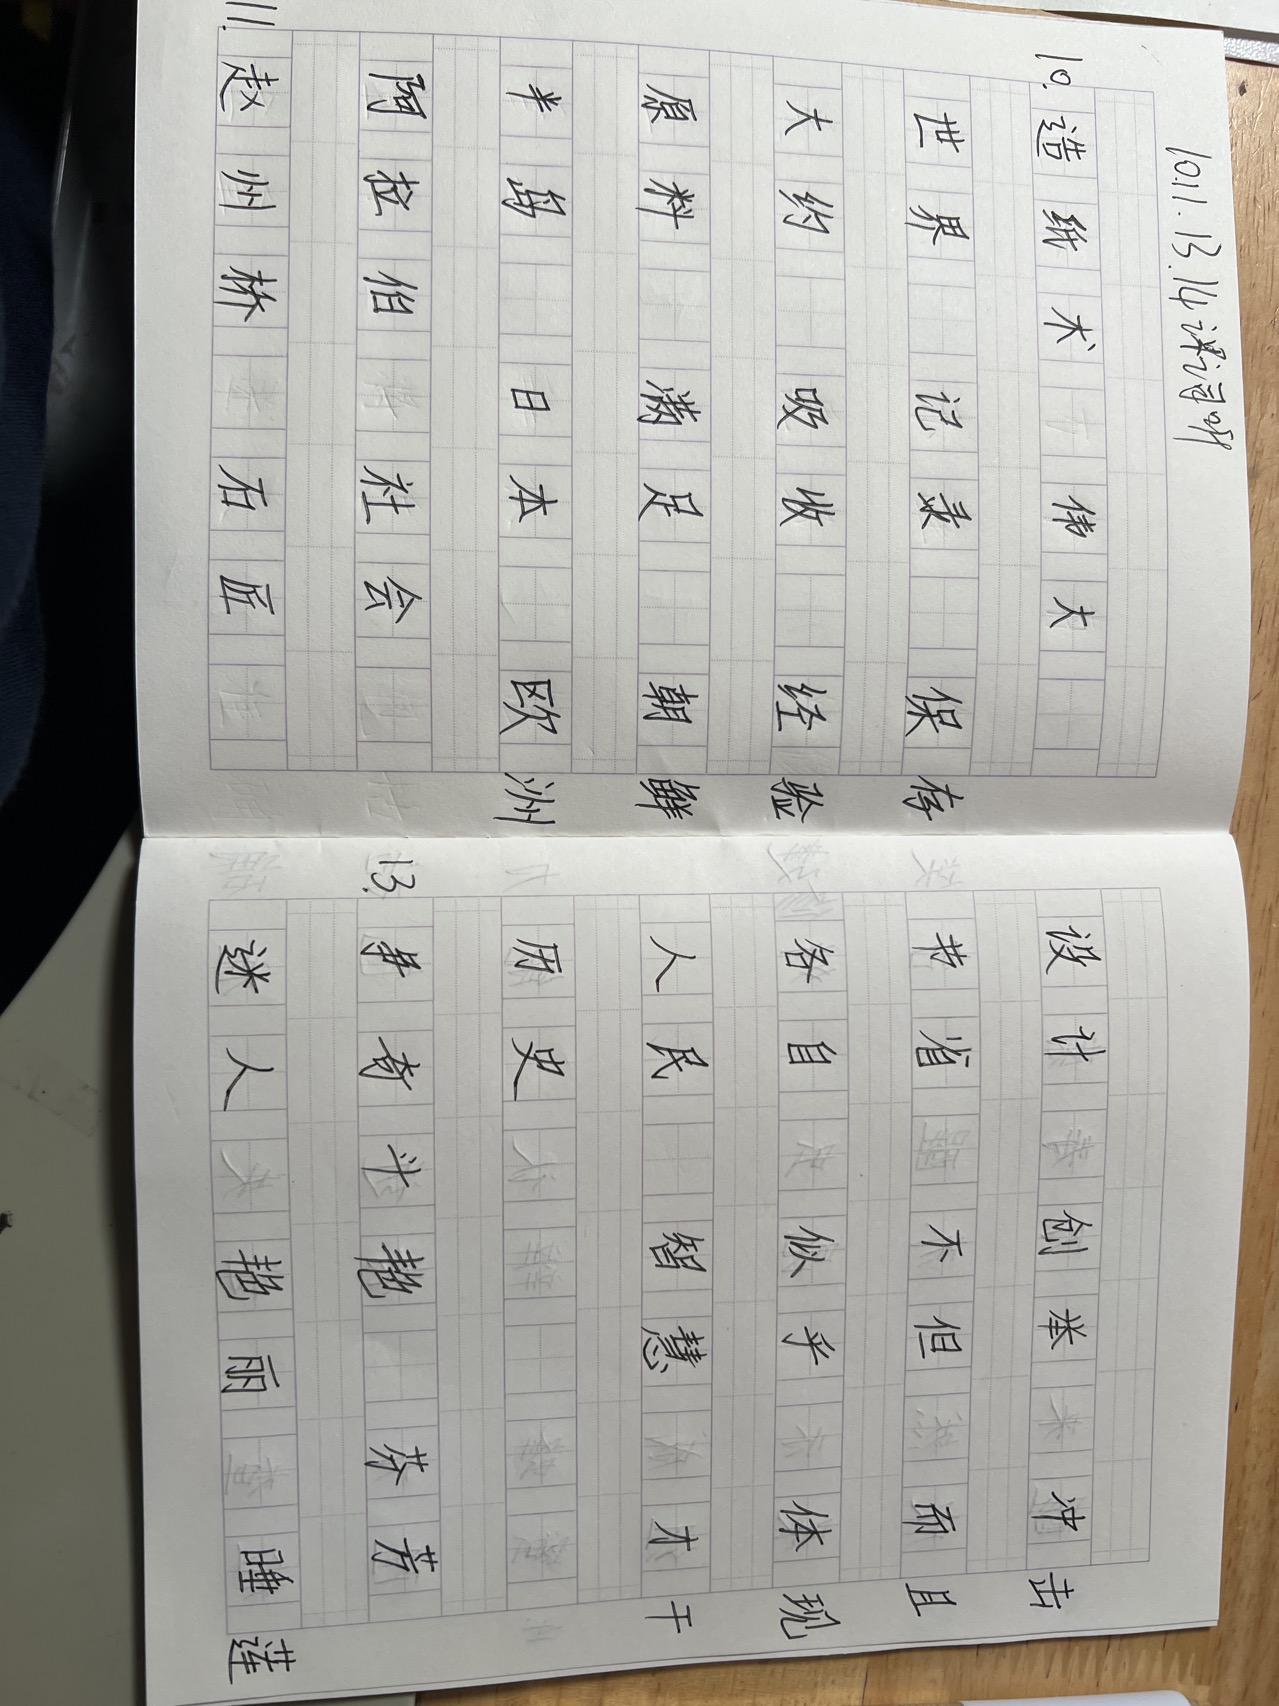 10.11.13.14课词听
10.造纸术 伟大
世界 记录 保存
大约 吸收 经验
原料 满足 朝鲜
半岛 日本 欧洲
阿拉伯 社会
11.赵州桥 石匠
设计 创举 冲击
节省 不但 而且
各自 似乎 体现
人民 智慧 才干
历史
13.争奇斗艳 芬芳
迷人 艳丽 睡莲